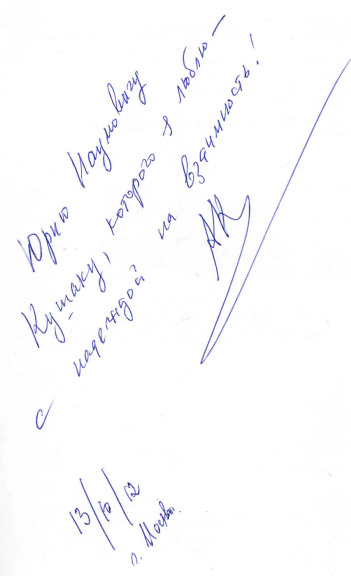 Юрию Наумовичу
Кушаку, которого я люблю —
с надеждой на взаимность!
АК
13/10/12
г. Москва